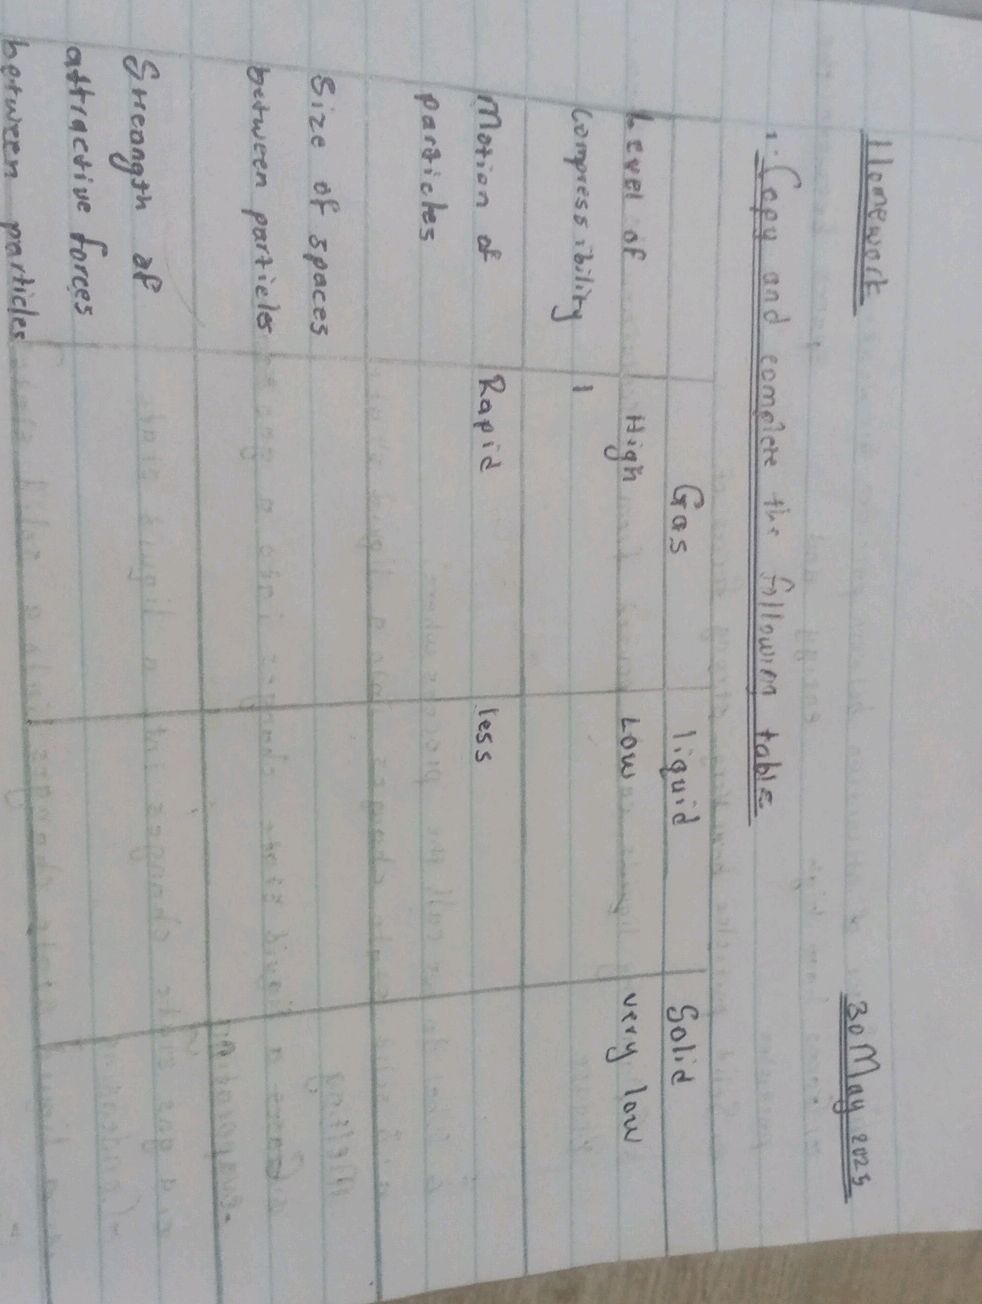 Homework 30 May 2025
1. Copy and complete the followin table
Gas liquid Solid
Level of High Low very low
Compressibility
Motion of Rapid less
particles
Size of spaces
between particles
Strength of
attractive forces
between particles